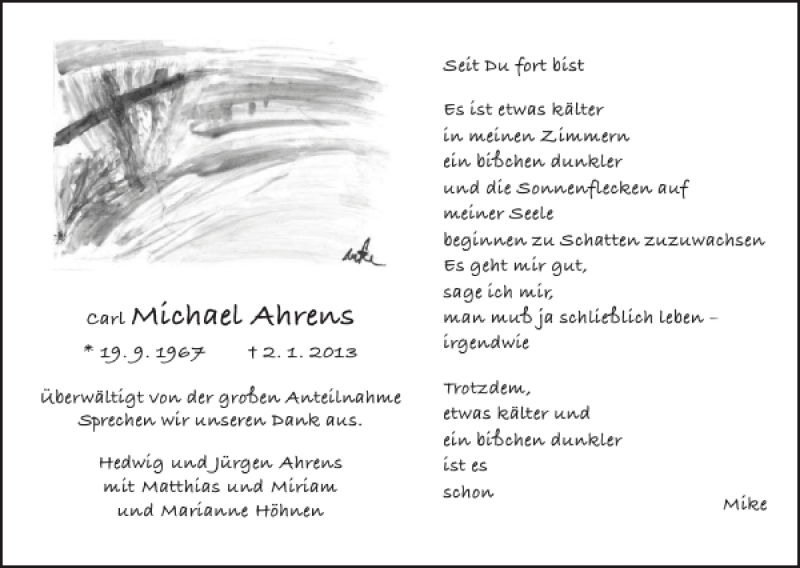 Mike
Carl Michael Ahrens
* 19. 9. 1967 † 2. 1. 2013
Überwältigt von der großen Anteilnahme
Sprechen wir unseren Dank aus.
Hedwig und Jürgen Ahrens
mit Matthias und Miriam
und Marianne Höhnen
Seit Du fort bist
Es ist etwas kälter
in meinen Zimmern
ein bißchen dunkler
und die Sonnenflecken auf
meiner Seele
beginnen zu Schatten zuzuwachsen
Es geht mir gut,
sage ich mir,
man muß ja schließlich leben –
irgendwie
Trotzdem,
etwas kälter und
ein bißchen dunkler
ist es
schon
Mike